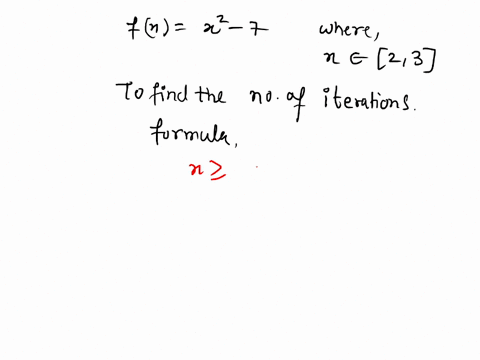 f(x) = x² - 7 where,
x ∈ [2,3]
To find the no. of iterations.
formula,
n ≥